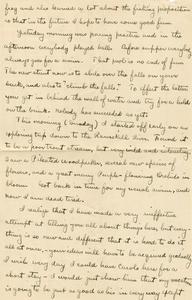 frog and also learned a lot about the fishing proposition
so that in the future I hope to have some good fun.
Yesterday morning was paving practice and in the
afternoon everybody played ball. Before supper everybody
always goes for a swim. But pool is no end of fun.
The new stunt now is to slide over the falls on your
back, and also "climb the falls". To effect the latter
you get in behind the wall of water and try for a hold
on the rocks. nobody has succeeded as yet.
This morning (Sunday) I started off early on an
exploring trip down to the Kaaterskill
be a poor trout stream, but very wild and interesting.
I saw a Pileated woodpecker, several new species of
flowers, and a great many Purple-flowering Orchids in
bloom. Got back in time for my usual swim, and
now I am dead tired.
I realize that I have made a very ineffective
attempt at telling you all about things here, but every
thing is so new and different that it is hard to do it
all at once. more ideas will have to be acquired gradually.
I wish every day I could have Carols here for a
about stay - I would just show him that my work
is going to be just as good as his in every way, kept